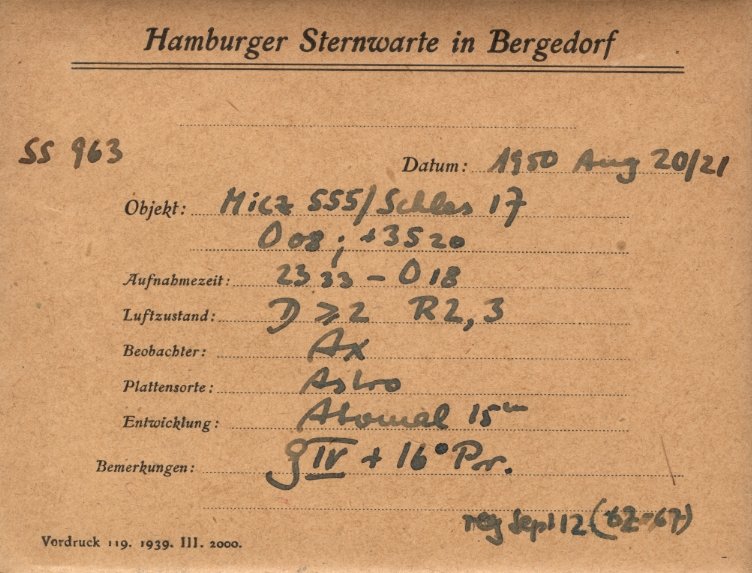 Hamburger Sternwarte in Bergedorf
SS 963
Datum: 1950 Aug 20/21
Objekt: Milz 555/Schles 17
0 08 ; +35 20
Aufnahmezeit: 23 33 – 0 18
Luftzustand: D ⩾ 2 R 2,3
Beobachter: Ax
Plattensorte: Astro
Entwicklung: Atomal 15ᵐ
Bemerkungen: g IV + 16° Pr.
reg Sept 12
Vordruck 119. 1939. III. 2000.